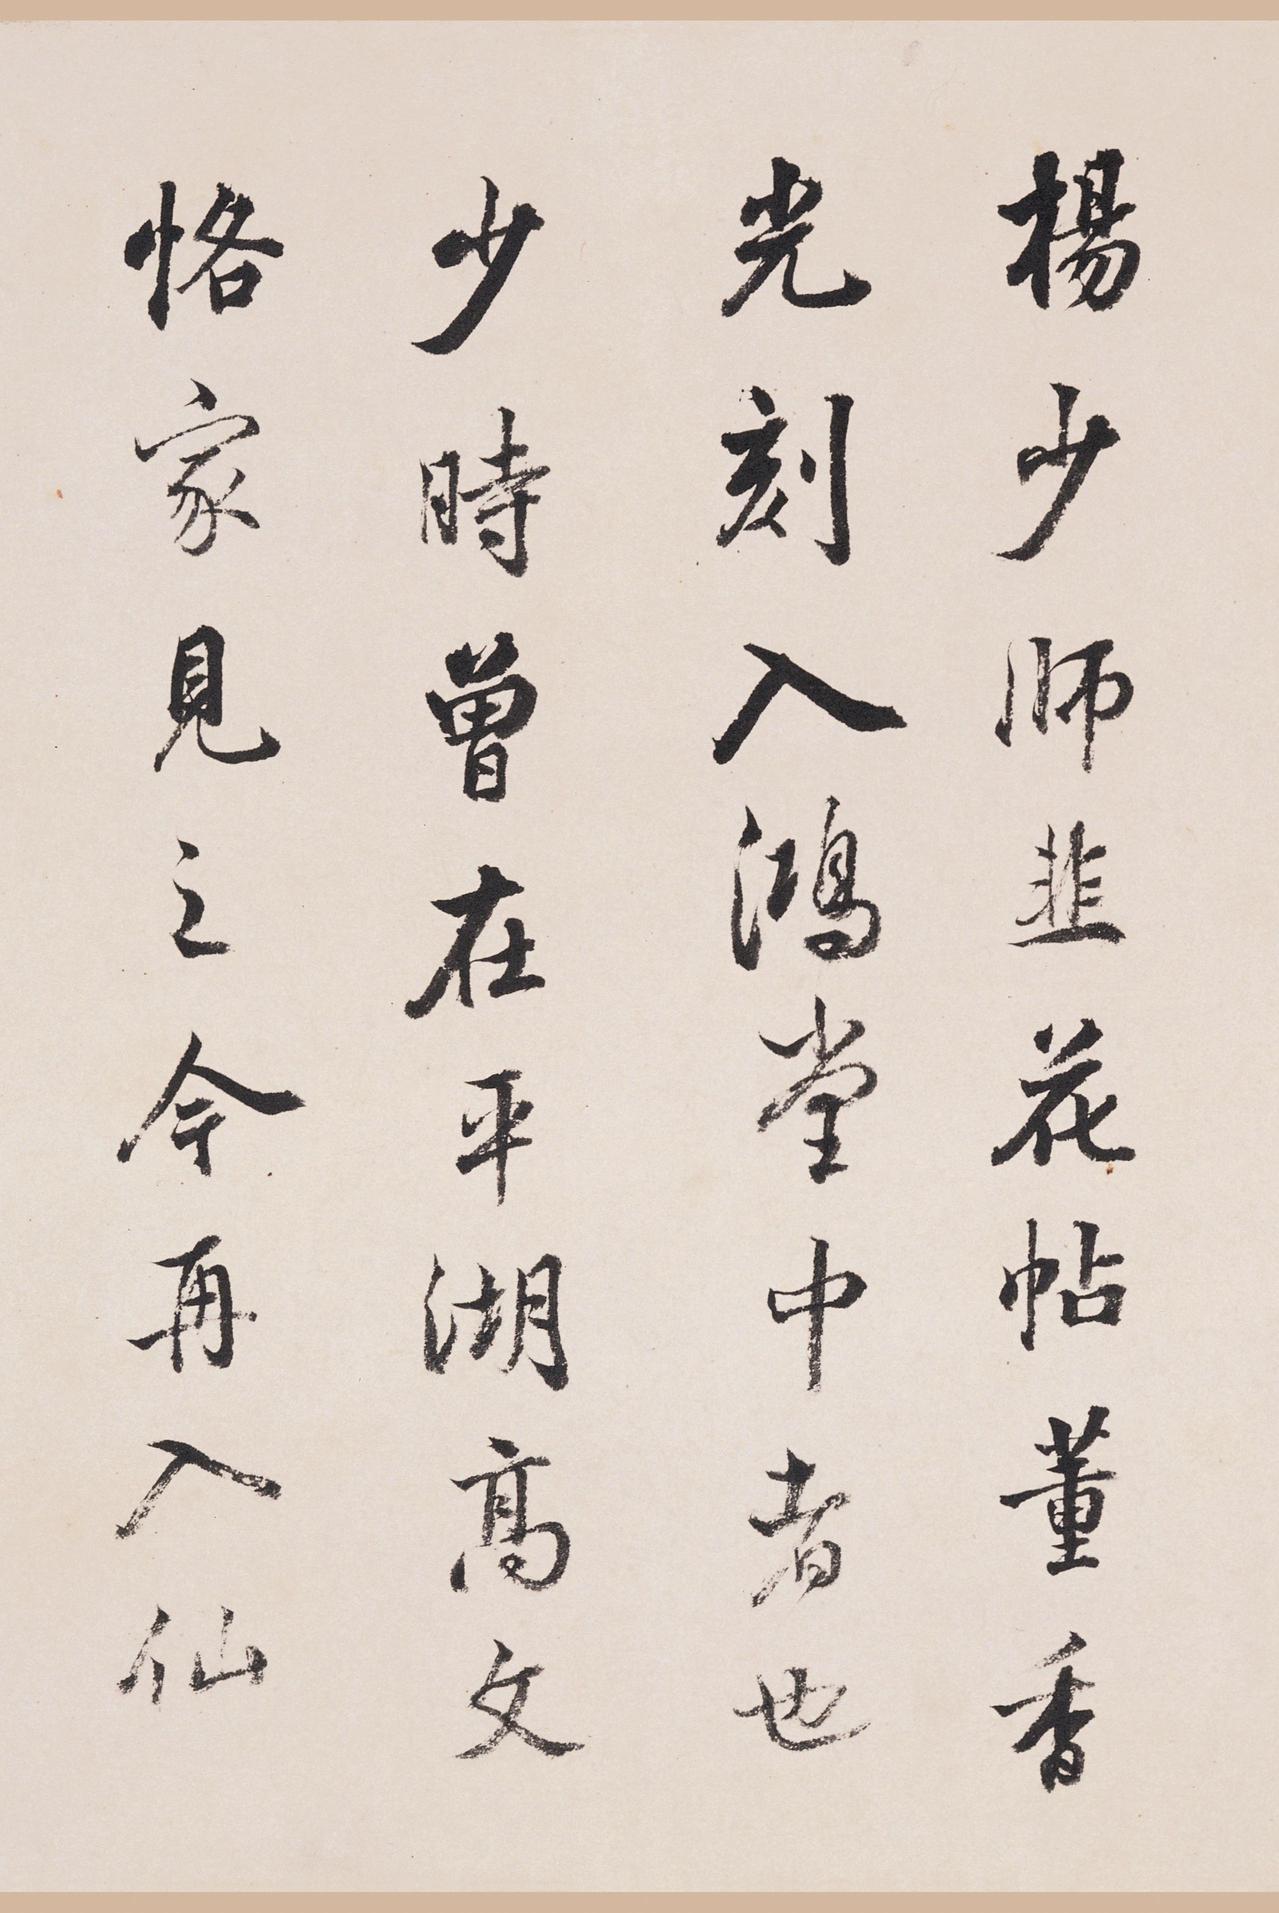 楊少師韭花帖董香
光刻入鴻堂中者也
少時曾在平湖高文
恪家見之今再入仙